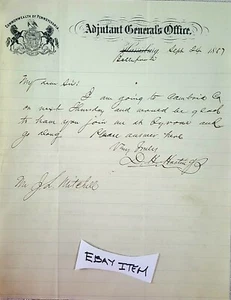 COMMONWEALTH OF PENNSYLVANIA
Adjutant General's Office.
Harrisburg Sept 24 1887
Bellefonte
My dear Sir:
I am going to Cambria Co
on next Thursday and would be glad
to have you join me in Tyrone and
go along. Please answer here
Very Truly
D. H. Hastings
Mr J. L. Mitchell
EBAY ITEM